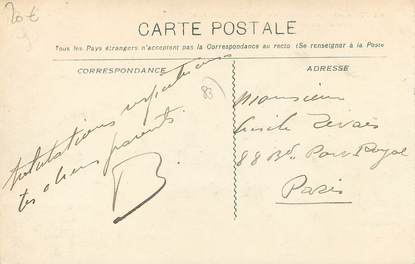 20 €
CARTE POSTALE
Tous les Pays étrangers n'acceptent pas la Correspondance au recto (Se renseigner à la Poste
CORRESPONDANCE
ADRESSE
83)
Salutations respectueuses
tes chers parents.
B.
Monsieur
88 Bd. Port Royal
Paris